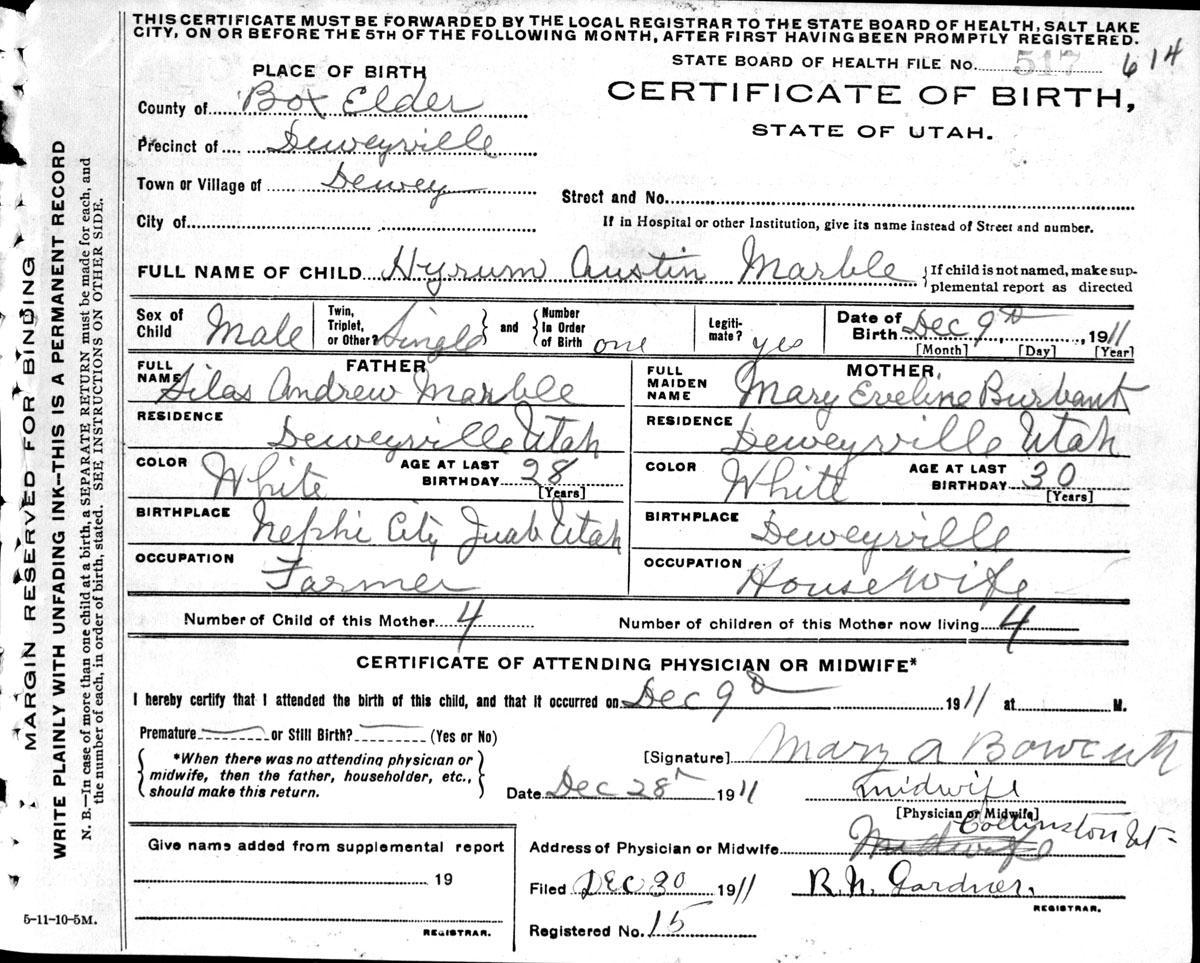 THIS CERTIFICATE MUST BE FORWARDED BY THE LOCAL REGISTRAR TO THE STATE BOARD OF HEALTH, SALT LAKE
CITY, ON OR BEFORE THE 5TH OF THE FOLLOWING MONTH, AFTER FIRST HAVING BEEN PROMPTLY REGISTERED.
STATE BOARD OF HEALTH FILE No. 517 614
PLACE OF BIRTH
CERTIFICATE OF BIRTH,
STATE OF UTAH.
County of Box Elder
Precinct of Deweyville
Town or Village of Dewey
Street and No.
City of
If in Hospital or other Institution, give its name instead of Street and number.
FULL NAME OF CHILD Hyrum Austin Marble {If child is not named, make sup-
plemental report as directed
Sex of Child Male
Twin, Triplet, or Other? Single
and
Number In Order of Birth one
Legiti-mate? yes
Date of Birth Dec 9th, 1911
[Month] [Day] [Year]
FATHER
FULL NAME Silas Andrew Marble
RESIDENCE Deweyville Utah
COLOR White AGE AT LAST BIRTHDAY 28
[Years]
BIRTHPLACE Nephi City Juab Utah
OCCUPATION Farmer
MOTHER
FULL MAIDEN NAME Mary Eveline Burbank
RESIDENCE Deweyville Utah
COLOR White AGE AT LAST BIRTHDAY 30
[Years]
BIRTHPLACE Deweyville
OCCUPATION HouseWife
Number of Child of this Mother 4 Number of children of this Mother now living 4
CERTIFICATE OF ATTENDING PHYSICIAN OR MIDWIFE*
I hereby certify that I attended the birth of this child, and that it occurred on Dec 9th 1911 at M.
Premature or Still Birth? (Yes or No)
*When there was no attending physician or
midwife, then the father, householder, etc.,
should make this return.
[Signature] Mary A Bowcutt
Date Dec 28th 1911 midwife
[Physician or Midwife]
Collinston Ut
Address of Physician or Midwife Midwife
Give name added from supplemental report
19
REGISTRAR.
Filed DEC 30 1911 R. N. Gardner.
REGISTRAR.
Registered No. 15
5-11-10-5M.
MARGIN RESERVED FOR BINDING
WRITE PLAINLY WITH UNFADING INK—THIS IS A PERMANENT RECORD
N. B.—In case of more than one child at a birth, a SEPARATE RETURN must be made for each, and
the number of each, in order of birth, stated. SEE INSTRUCTIONS ON OTHER SIDE.